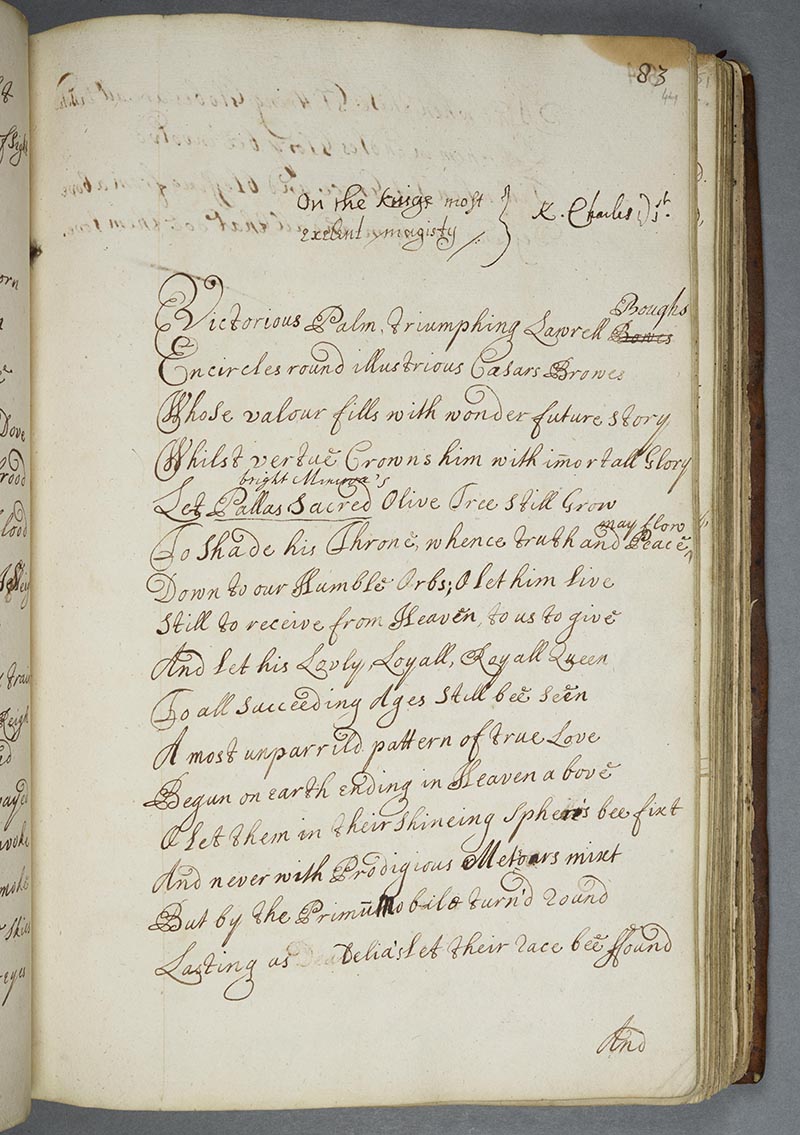 83
44
On the kings most
exelent magisty
} K. Charles ye 1st.
Boughs
Victorious Palm, triumphing Lawrell Bowes
Encircles round illustrious Cæsars Browes
Whose valour fills with wonder future story
Whilst vertue Crowns him with im̄ortall Glory
bright Minerva's
Let Pallas Sacred Olive Tree still Grow
may flow
To shade his Throne, whence truth and Peace,
Down to our Humble Orbs; O let him live
Still to receive from Heaven, to us to give
And let his Lovly, Loyall, Royall Queen
To all succeeding Ages still bee seen
A most unparrild pattern of true Love
Begun on earth ending in Heaven above
O let them in their shineing Spheirs bee fixt
And never with Prodigious Meteors mixt
But by the Primū Mobile turn'd round
Lasting as Delia's let their race bee ffound
And